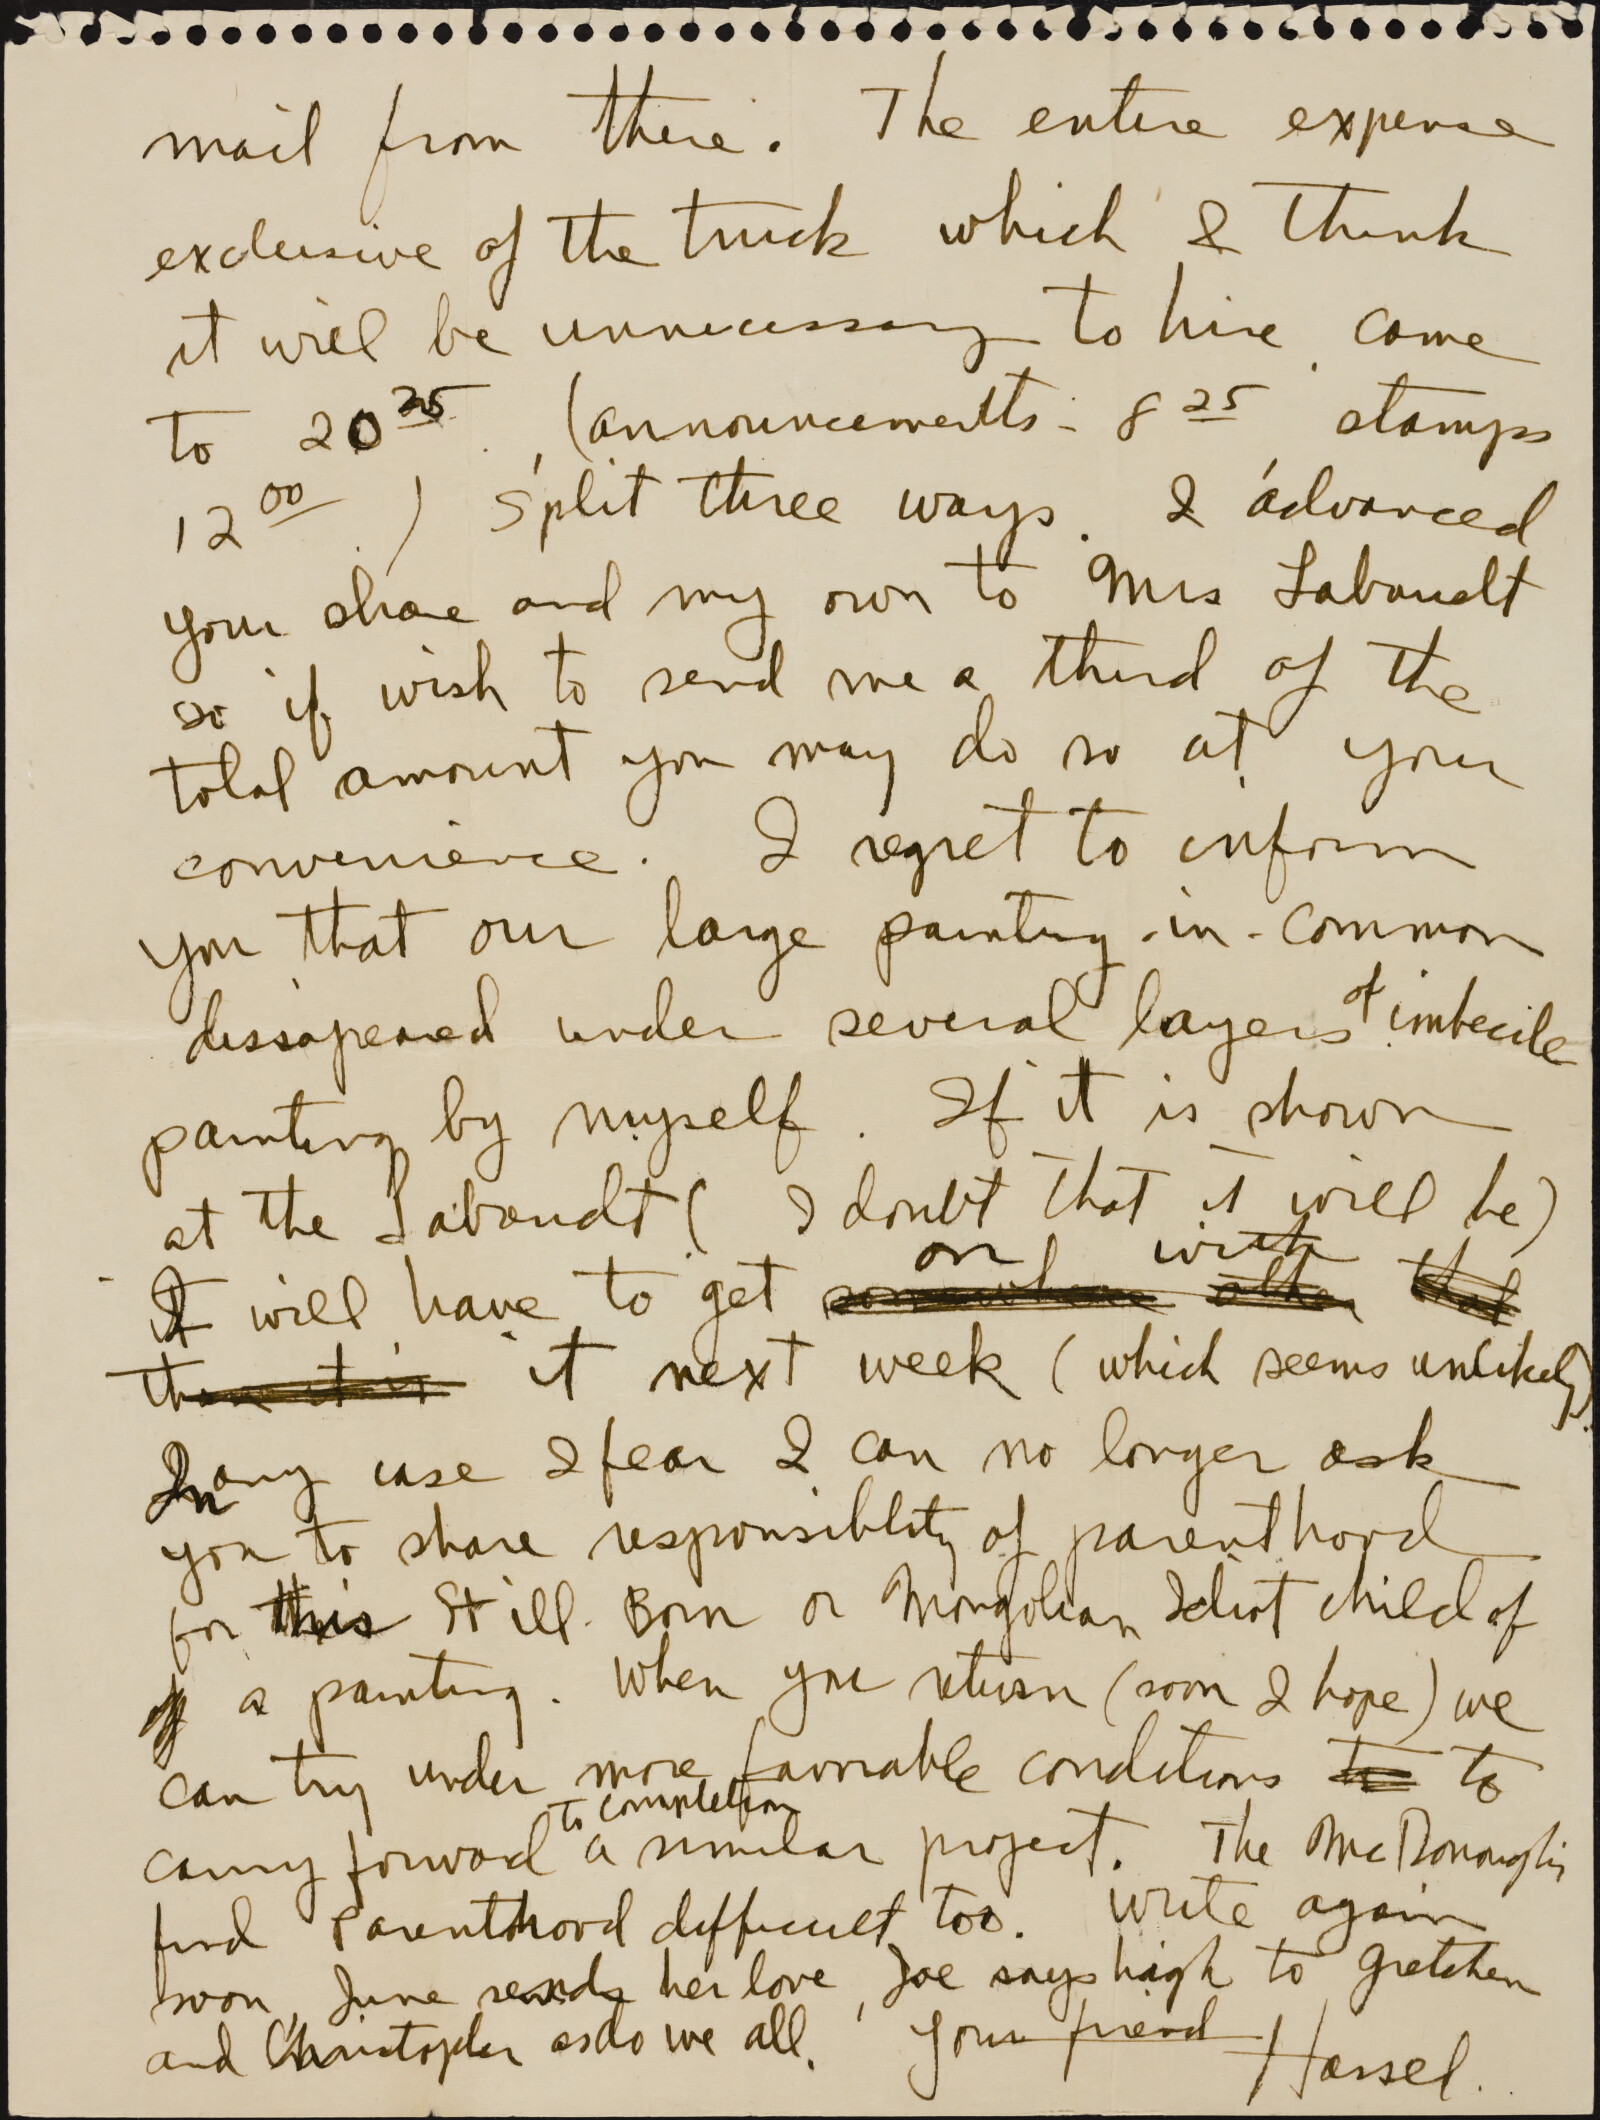 mail from there. The entire expense
exclusive of the truck which I think
it will be unnecessary to hire come
to 20 25 (announcements - 8 25 stamps
12 00 ) split three ways. I advanced
your share and my own to Mrs Labaudt
so if wish to send me a third of the
total amount you may do so at your
convenience. I regret to inform
you that our large painting-in-common
dissapeared under several layers of imbecile
painting by myself. If it is shown
at the Labaudt ( I doubt that it will be)
on with
It will have to get somewhere other that
than it is it next week (which seems unlikely).
In any case I fear I can no longer ask
you to share responsiblity of parenthood
for this Still-Born or Mongolian Idiot child of
a painting. When you return (soon I hope) we
can try under more favorable conditions to to
to completion
carry forward a similar project. The McDonoughs
find Parenthood difficult too. Write again
soon, June sends her love, Joe says high to Gretchen
and Christopher as do we all. Your friend
Hassel.